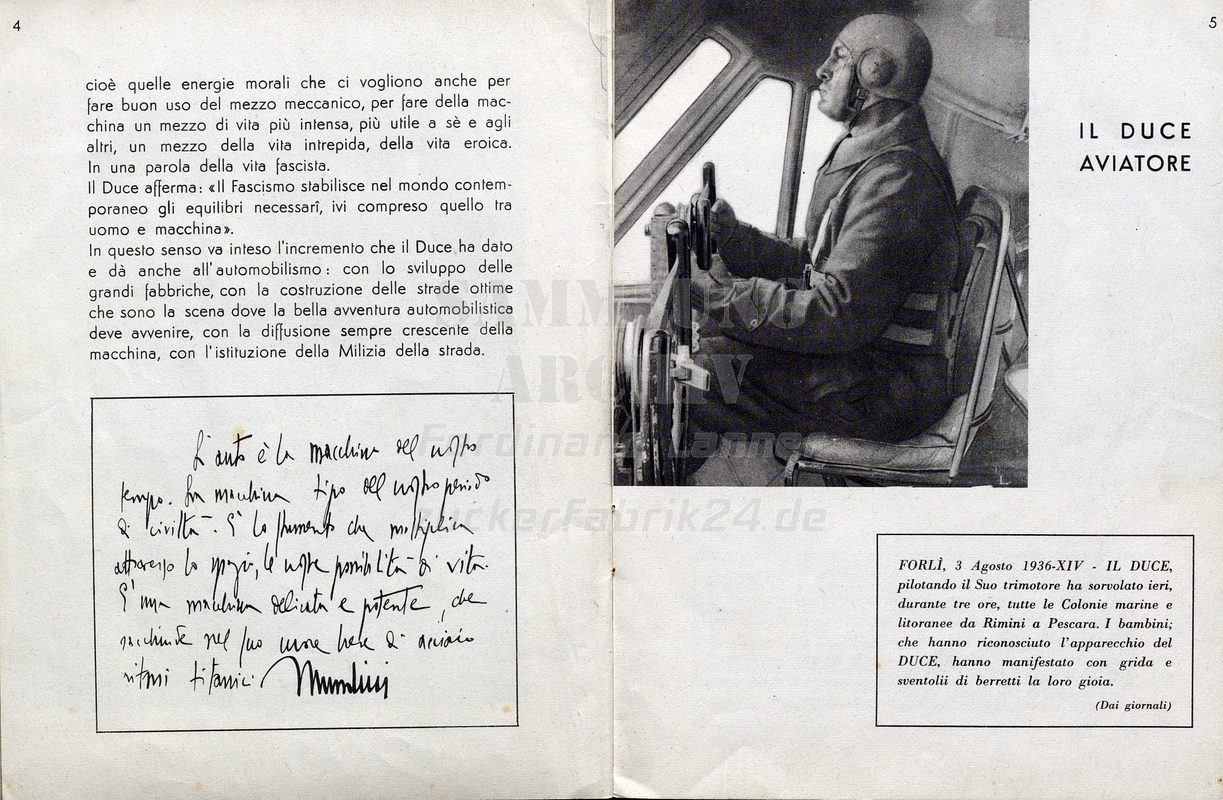 4
cioè quelle energie morali che ci vogliono anche per
fare buon uso del mezzo meccanico, per fare della mac-
china un mezzo di vita più intensa, più utile a sè e agli
altri, un mezzo della vita intrepida, della vita eroica.
In una parola della vita fascista.
Il Duce afferma: «Il Fascismo stabilisce nel mondo contem-
poraneo gli equilibri necessarî, ivi compreso quello tra
uomo e macchina».
In questo senso va inteso l'incremento che il Duce ha dato
e dà anche all'automobilismo: con lo sviluppo delle
grandi fabbriche, con la costruzione delle strade ottime
che sono la scena dove la bella avventura automobilistica
deve avvenire, con la diffusione sempre crescente della
macchina, con l'istituzione della Milizia della strada.
L'auto è la macchina del nostro
tempo. La macchina tipo del nostro periodo
di civiltà. È lo strumento che moltiplica
attraverso lo spazio, le nostre possibilità di vita.
È una macchina delicata e potente, che
racchiude nel suo cuore breve di acciaio
ritmi titanici Mussolini
5
IL DUCE
AVIATORE
FORLÌ, 3 Agosto 1936-XIV - IL DUCE,
pilotando il Suo trimotore ha sorvolato ieri,
durante tre ore, tutte le Colonie marine e
litoranee da Rimini a Pescara. I bambini;
che hanno riconosciuto l'apparecchio del
DUCE, hanno manifestato con grida e
sventolii di berretti la loro gioia.
(Dai giornali)
SAMMLUNG
ARCHIV
Ferdinand Lanner
zuckerfabrik24.de